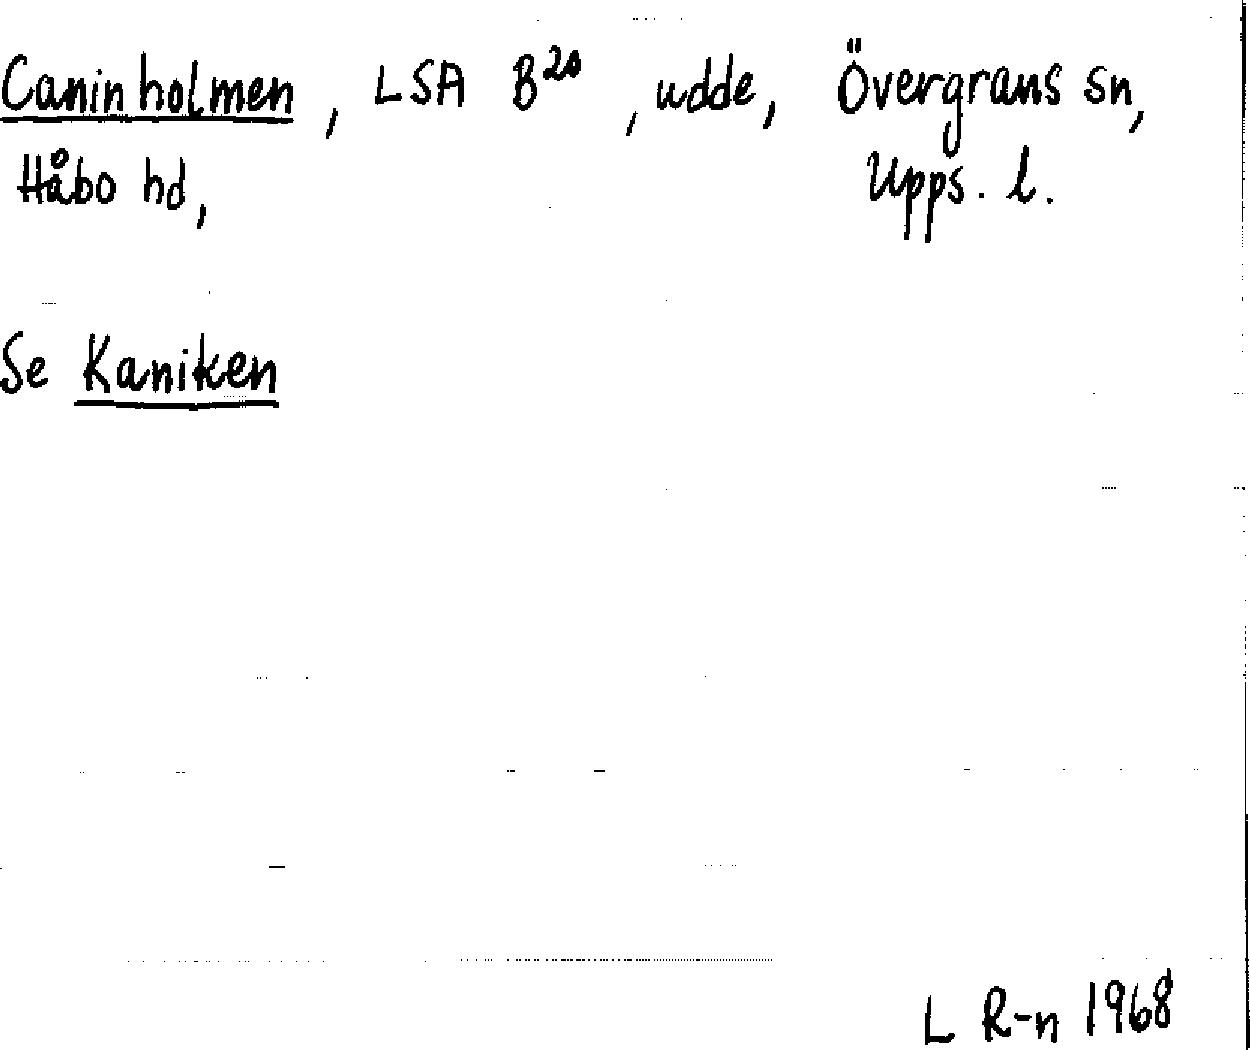 Caninholmen, LSA B²⁰, udde, Övergrans sn,
Håbo hd, Upps. l.
Se Kaniken
L R-n 1968